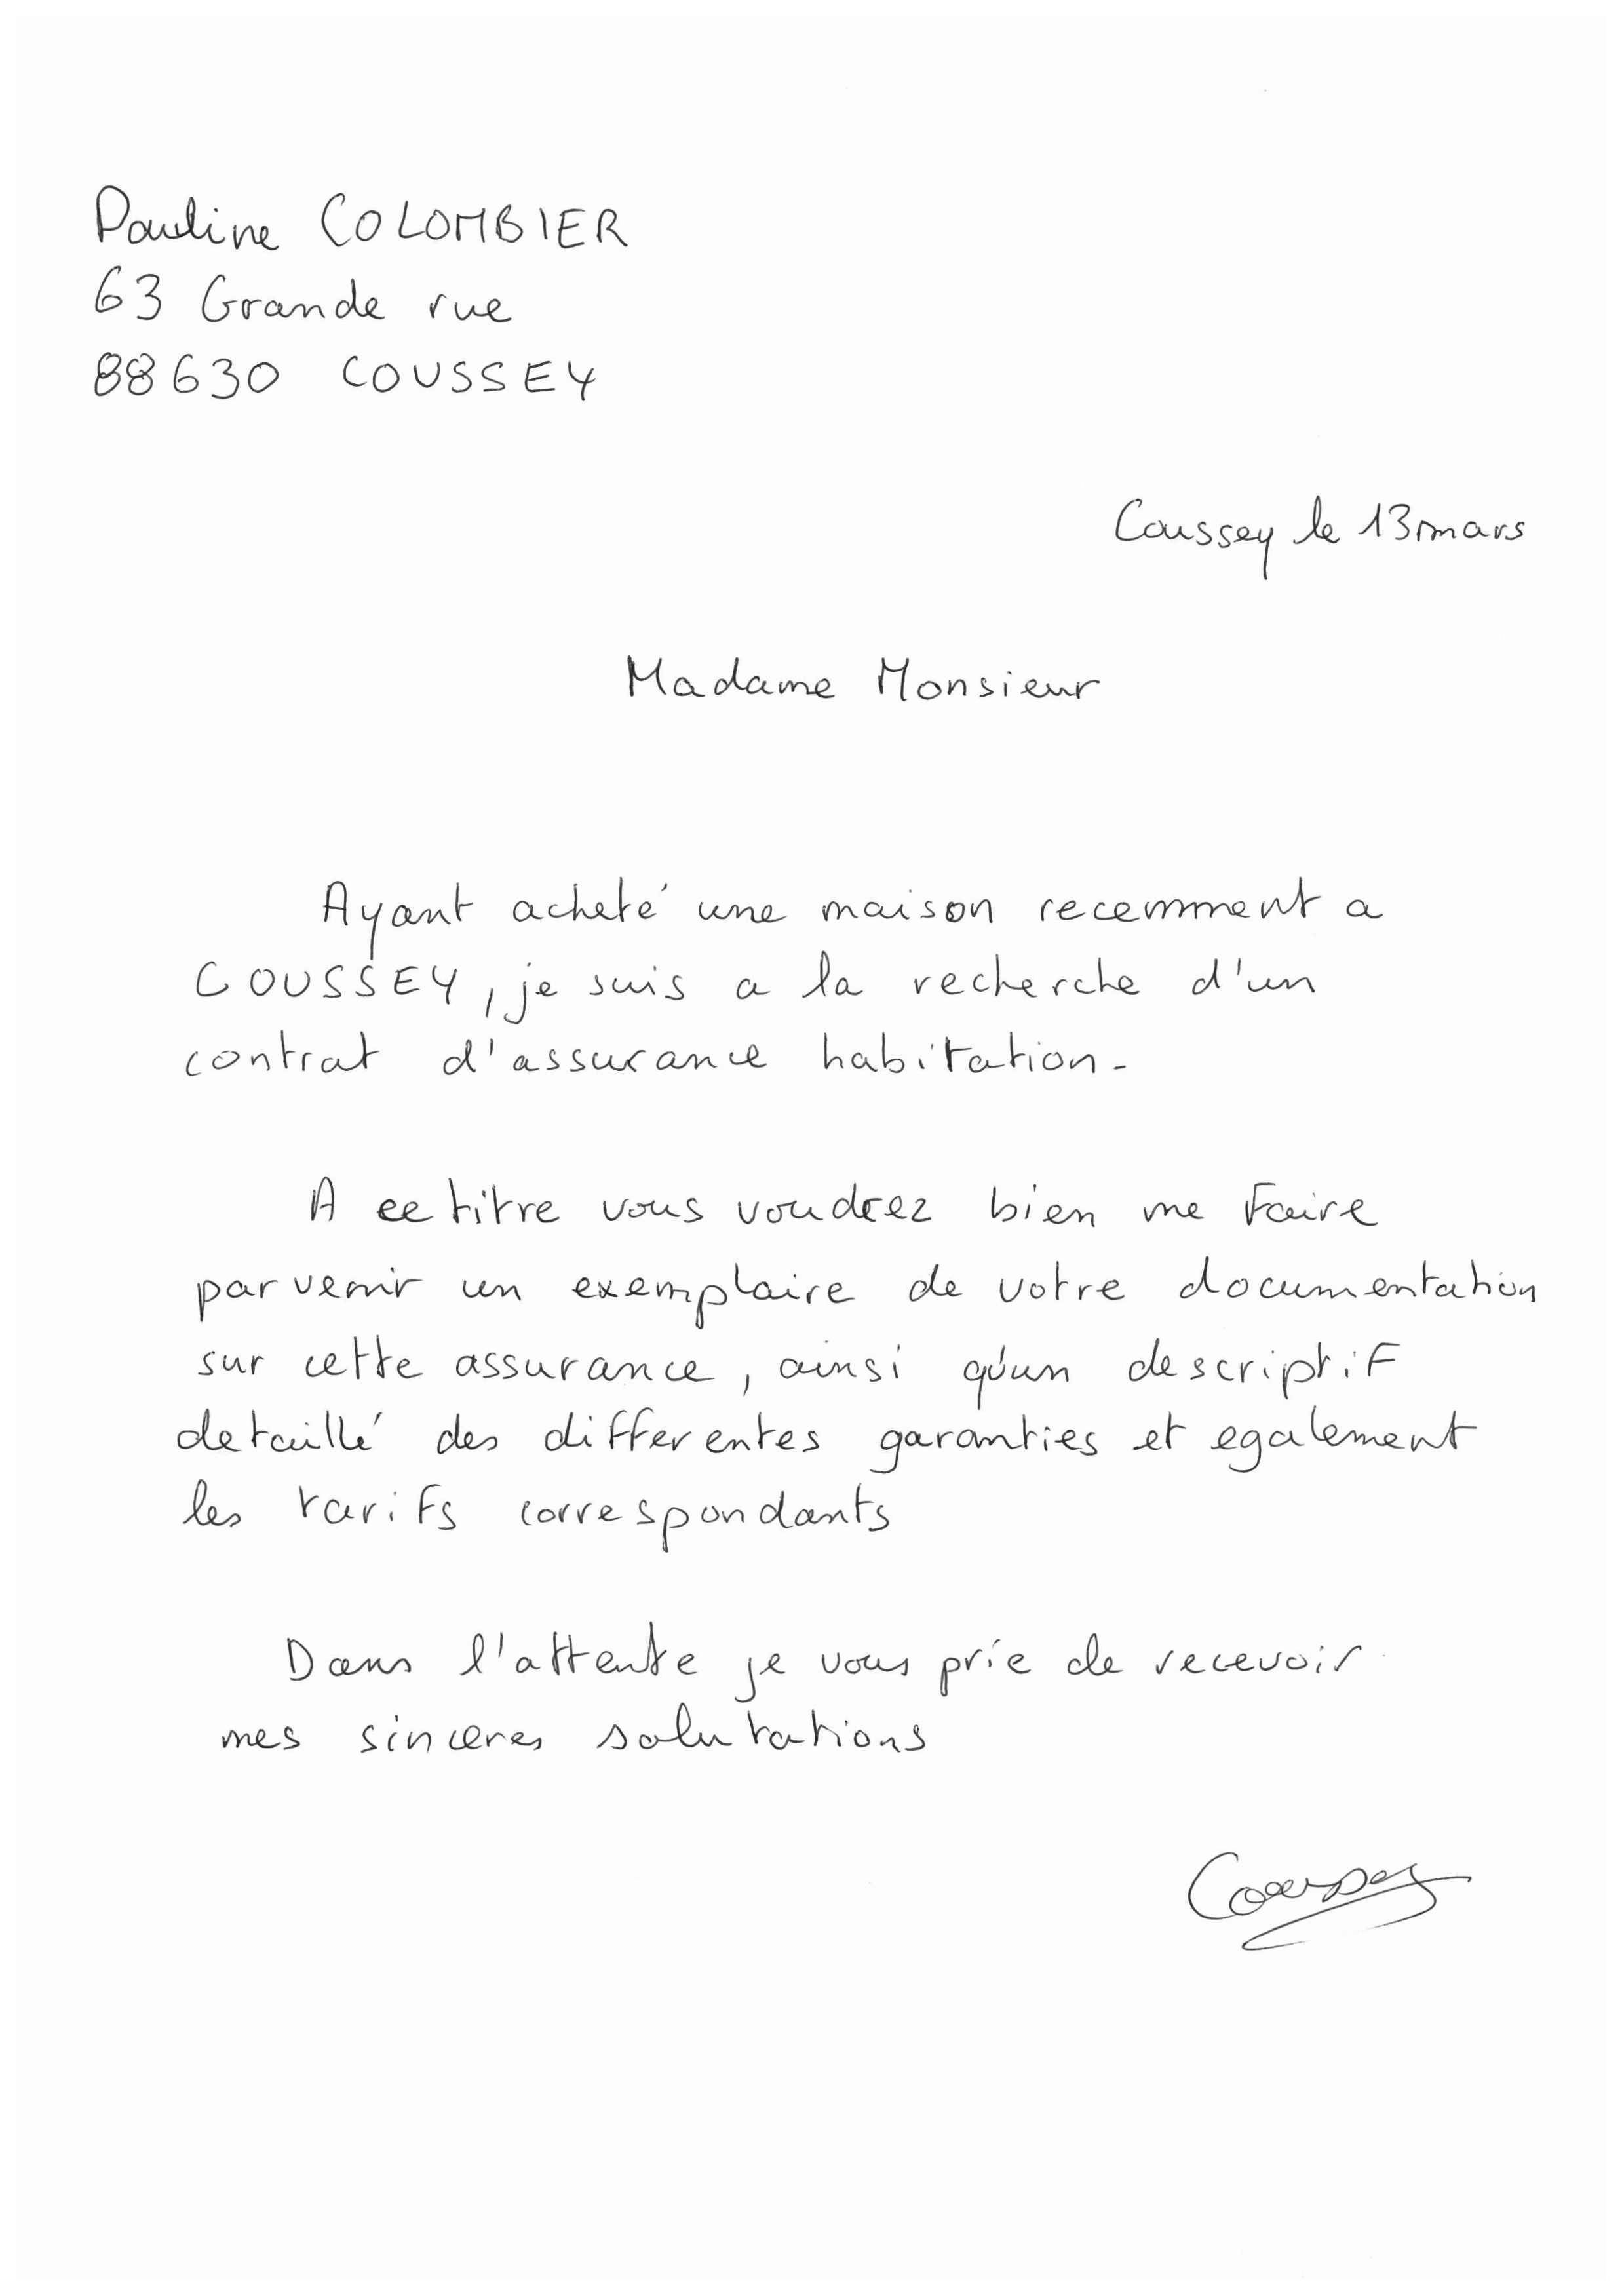 Pauline COLOMBIER
63 Grande rue
88630 COUSSEY
Coussey le 13 mars
Madame Monsieur
Ayant acheté une maison recemment a
COUSSEY, je suis a la recherche d'un
contrat d'assurance habitation.
A ce titre vous voudrez bien me faire
parvenir un exemplaire de votre documentation
sur cette assurance, ainsi qu'un descriptif
detaillé des differentes garanties et egalement
les tarifs correspondants
Dans l'attente je vous prie de recevoir
mes sinceres salutations